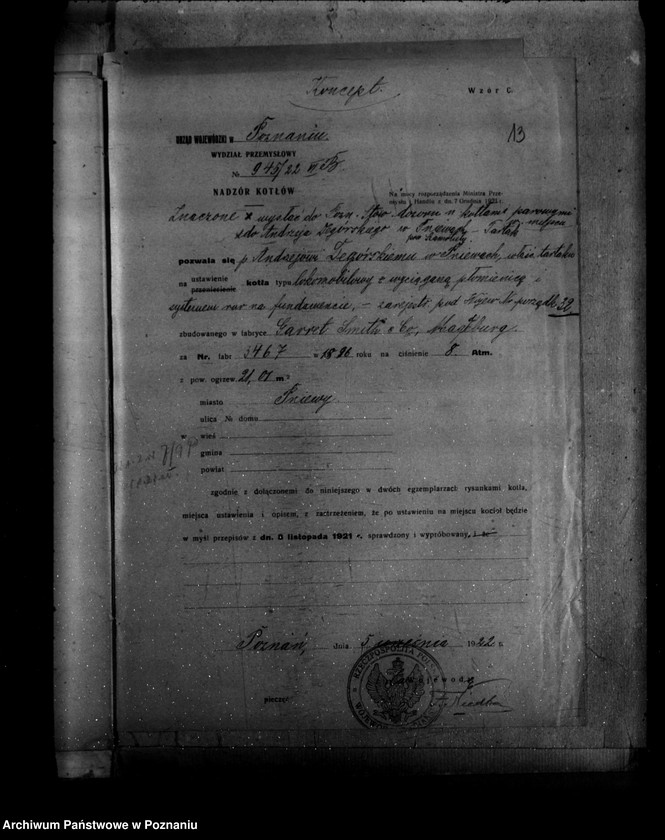 Koncept.
Wzór C.
13
URZĄD WOJEWÓDZKI w Poznaniu.
WYDZIAŁ PRZEMYSŁOWY
№ 945/22
NADZÓR KOTŁÓW
Na mocy rozporządzenia Ministra Prze-
mysłu i Handlu z dn. 7 Grudnia 1921 r.
Znaczone x wysłać do Pozn. Stow. dozoru n. kotłami parowymi
do Andrzeja w Pniewach Tartak
pozwala się p. Andrzejowi w Pniewach, właśc. tartaku
na ustawienie przeniesienie kotła typu lokomobilowy z wyciąganą płomienicą i
systemem rur na fundamencie, - zarejestr. pod 32
zbudowanego w fabryce Garret Smith & Co, Magdeburg.
za Nr. fabr 3467 w 1896 roku na ciśnienie 8. Atm.
z pow. ogrzew. 21,01 m²
miasto Pniewy.
ulica № domu
w wieś
gmina
powiat
zgodnie z dołączonemi do niniejszego w dwóch egzemplarzach rysunkami kotła,
miejsca ustawienia i opisem, z zastrzeżeniem, że po ustawieniu na miejscu kocioł będzie
w myśl przepisów z dn. 5 listopada 1921 r. sprawdzony i wypróbowany, i że
Poznań, dnia 5 września 1922 r.
RZECZPOSPOLITA
Wojewoda
pieczęć
Archiwum Państwowe w Poznaniu